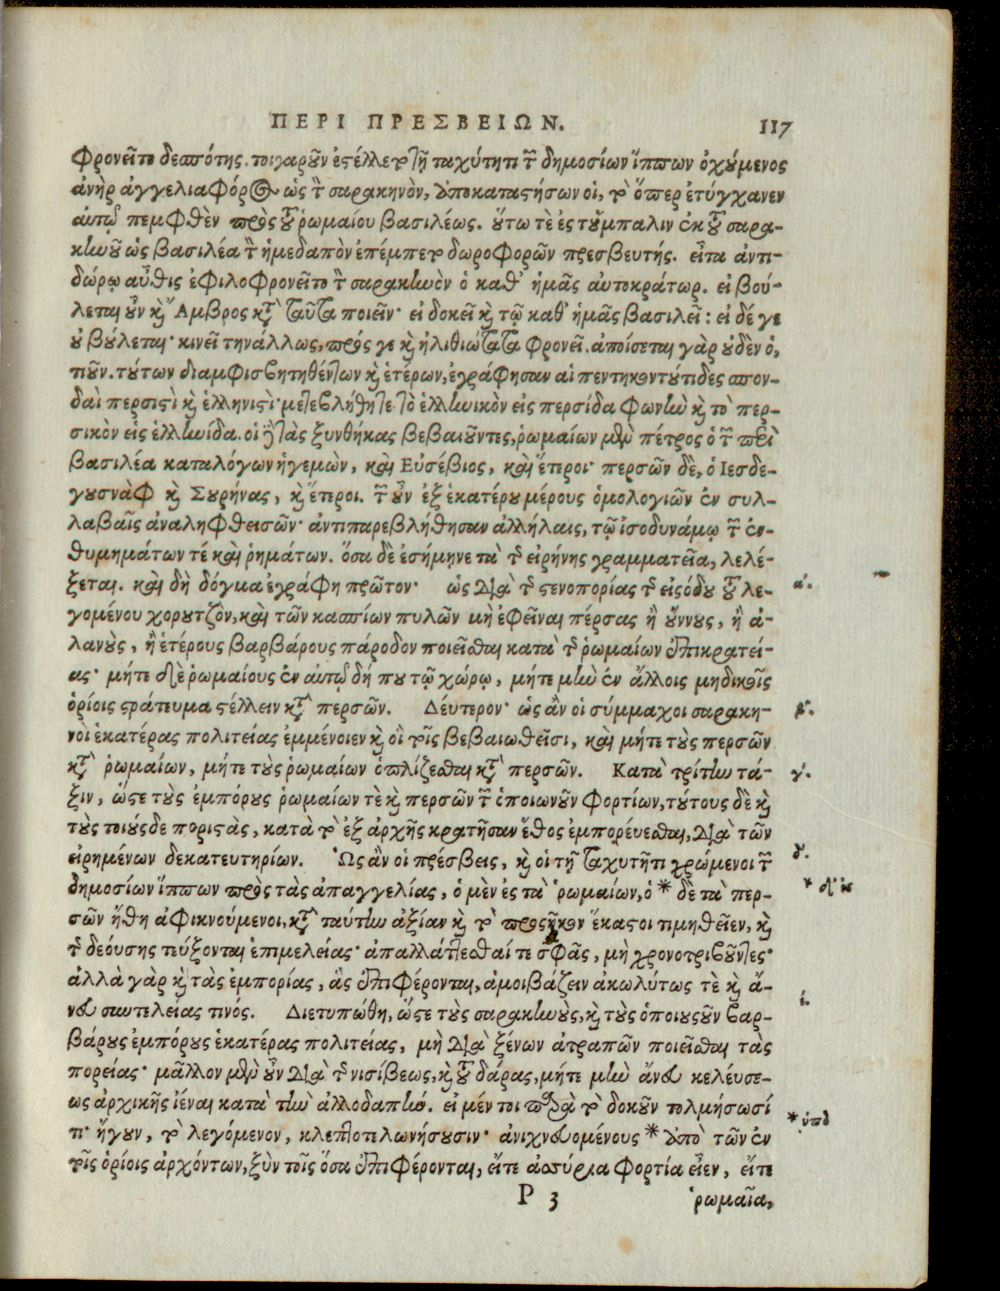 ΠΕΡΙ ΠΡΕΣΒΕΙΩΝ. 117
φρονεῖτο δεσπότης. τοιγαροῦν ἐστέλλετο τῇ ταχύτητι τῶν δημοσίων ἵππων ὀχούμενος
ἀνὴρ ἀγγελιαφόρος ὡς τὸν σαρακηνὸν, ὑποκαταστήσων οἱ, τὸ ὅπερ ἐτύγχανεν
αὐτῷ πεμφθὲν πρὸς τοῦ ῥωμαίου βασιλέως. οὕτω τὲ ἐς τοὔμπαλιν ἐκ τοῦ σαρα-
κηνοῦ ὡς βασιλέα τὸν ἡμεδαπὸν ἐπέμπετο δωροφορῶν πρεσβευτής. εἶτα ἀντι-
δώρῳ αὖθις ἐφιλοφρονεῖτο τὸν σαρακηνὸν ὁ καθ' ἡμᾶς αὐτοκράτωρ. εἰ βού-
λεται οὖν καὶ Ἄμβρος κατὰ ταῦτα ποιεῖν· εἰ δοκεῖ καὶ τῷ καθ' ἡμᾶς βασιλεῖ: εἰ δέ γε
οὐ βούλεται· κινεῖ τηνάλλως, πρός γε καὶ ἠλιθιώτατα φρονεῖ. ἀποίσεται γὰρ οὐδὲν ὁ,
τιοῦν. τούτων διαμφισβητηθέντων καὶ ἑτέρων, ἐγράφησαν αἱ πεντηκοντούτιδες σπον-
δαὶ περσιστὶ καὶ ἑλληνιστί· μετεβλήθητε τὸ ἑλληνικὸν εἰς περσίδα φωνὴν καὶ τὸ περ-
σικὸν εἰς ἑλληνίδα. οἱ ἢ τὰς ξυνθήκας βεβαιοῦντες, ῥωμαίων μὲν πέτρος ὁ τῶν περὶ
βασιλέα καταλόγων ἡγεμὼν, καὶ Εὐσέβιος, καὶ ἕτεροι· περσῶν δὲ, ὁ Ιεσδε-
γουσνὰφ καὶ Σουρήνας, καὶ ἕτεροι. τῶν οὖν ἐξ ἑκατέρου μέρους ὁμολογιῶν ἐν συλ-
λαβαῖς ἀναληφθεισῶν· ἀντιπαρεβλήθησαν ἀλλήλαις, τῷ ἰσοδυνάμῳ τῶν ἐν-
θυμημάτων τέ καὶ ῥημάτων. ὅσα δὲ ἐσήμηνε τὰ τῆς εἰρήνης γραμματεῖα, λελέ-
ξεται. καὶ δὴ δόγμα ἐγράφη πρῶτον· ὡς διὰ τῆς στενοπορίας τῆς εἰσόδου τοῦ λε- α΄.
γομένου χορουτζὸν, καὶ τῶν κασπίων πυλῶν μὴ ἐφεῖναι πέρσας ἢ οὕννους, ἢ ἀ-
λανοὺς, ἢ ἑτέρους βαρβάρους πάροδον ποιεῖσθαι κατὰ τῆς ῥωμαίων ἐπικρατεί-
ας· μήτε δὲ ῥωμαίους ἐν αὐτῷ δή που τῷ χώρῳ, μήτε μὴν ἐν ἄλλοις μηδικοῖς
ὁρίοις στράτευμα στέλλειν κατὰ περσῶν. Δεύτερον· ὡς ἂν οἱ σύμμαχοι σαρακη- β΄.
νοὶ ἑκατέρας πολιτείας ἐμμένοιεν καὶ οἳ τοῖς βεβαιωθεῖσι, καὶ μήτε τοὺς περσῶν
κατὰ ῥωμαίων, μήτε τοὺς ῥωμαίων ὁπλίζεσθαι κατὰ περσῶν. Κατὰ τρίτην τά- γ΄.
ξιν, ὥστε τοὺς ἐμπόρους ῥωμαίων τὲ καὶ περσῶν τῶν ὁποιωνοῦν φορτίων, τούτους δὲ καὶ
τοὺς τοιούσδε ποριστὰς, κατὰ τὸ ἐξ ἀρχῆς κρατῆσαν ἔθος ἐμπορεύεσθαι, διὰ τῶν
εἰρημένων δεκατευτηρίων. Ὡς ἂν οἱ πρέσβεις, καὶ οἱ τῇ ταχυτῆτι χρώμενοι τῶν δ΄.
δημοσίων ἵππων πρὸς τὰς ἀπαγγελίας, ὁ μὲν ἐς τὰ ῥωμαίων, ὁ * δὲ τὰ περ- * δ' ἐς
σῶν ἤθη ἀφικνούμενοι, κατὰ ταύτην ἀξίαν καὶ τὸ προσῆκον ἕκαστοι τιμηθεῖεν, καὶ
τῆς δεούσης τεύξονται ἐπιμελείας· ἀπαλλάττεσθαί τε σφᾶς, μὴ χρονοτριβοῦντες·
ἀλλὰ γὰρ καὶ τὰς ἐμπορίας, ἃς ἐπιφέρονται, ἀμοιβάζειν ἀκωλύτως τὲ καὶ ἄ-
νευ συντελείας τινός. Διετυπώθη, ὥστε τοὺς σαρακηνοὺς, καὶ τοὺς ὁποιουσοῦν βαρ- ε΄.
βάρους ἐμπόρους ἑκατέρας πολιτείας, μὴ διὰ ξένων ἀτραπῶν ποιεῖσθαι τὰς
πορείας· μᾶλλον μὲν οὖν διὰ τῆς νισίβεως, καὶ τοῦ δάρας, μήτε μὴν ἄνευ κελεύσε-
ως ἀρχικῆς ἰέναι κατὰ τὴν ἀλλοδαπήν. εἰ μέν τοι παρὰ τὸ δοκοῦν τολμήσωσί
τι· ἤγουν, τὸ λεγόμενον, κλεπτοτελωνήσουσιν· ἀνιχνευομένους * ὑπὸ τῶν ἐν * ὑπὸ
τοῖς ὁρίοις ἀρχόντων, ξὺν τοῖς ὅσα ἐπιφέρονται, εἴτε ἀσύρια φορτία εἶεν, εἴτε
P 3 ῥωμαῖα,